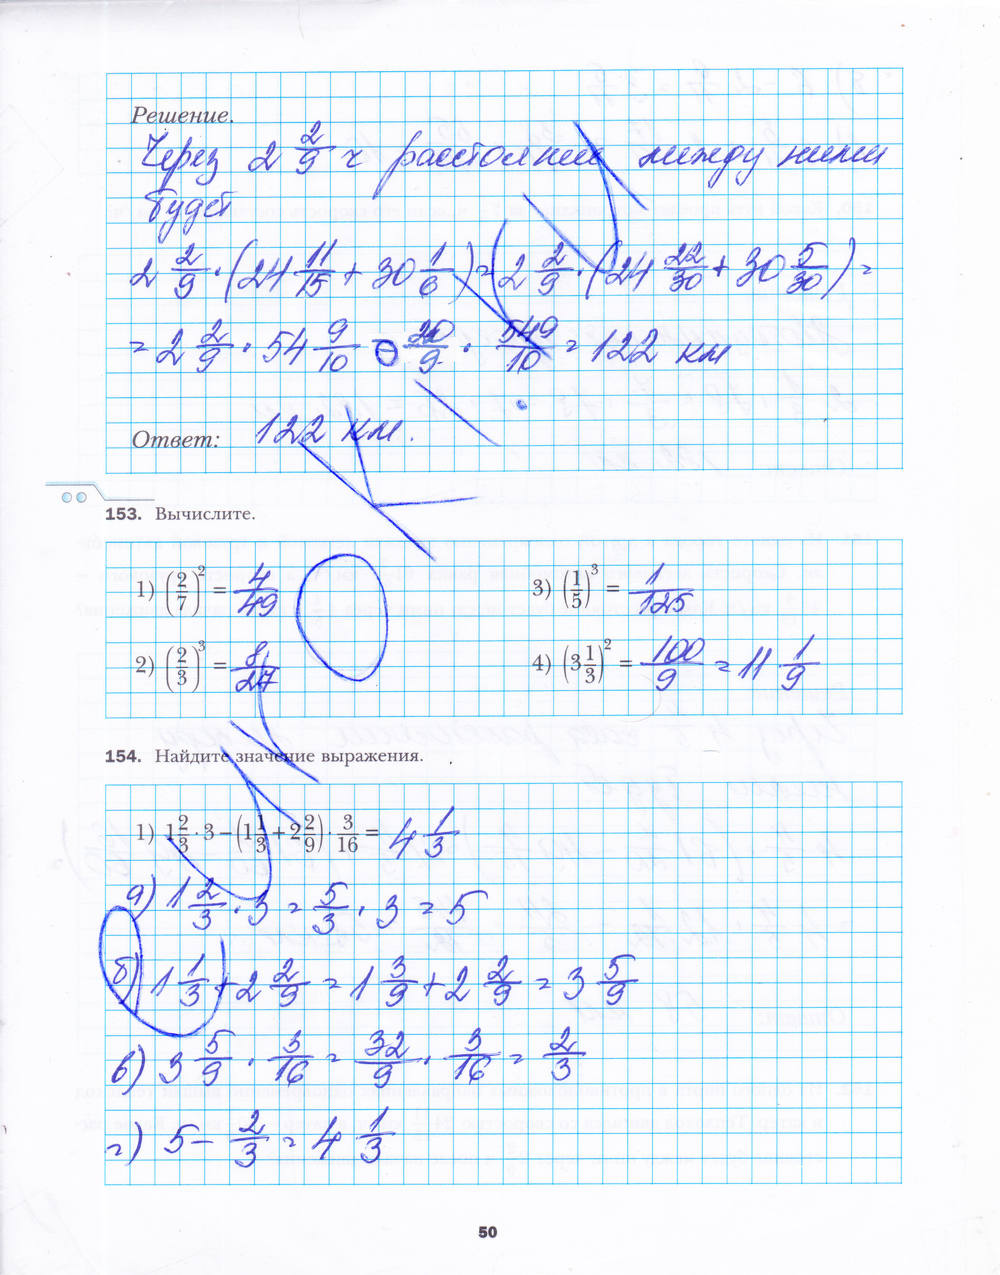 Решение.
Через 2 2/9 ч расстояние между ними
будет
2 2/9 · (24 11/15 + 30 1/6) = 2 2/9 · (24 22/30 + 30 5/30) =
= 2 2/9 · 54 9/10 = 20/9 · 549/10 = 122 км
Ответ: 122 км.
153. Вычислите.
1) (2/7)² = 4/49
3) (1/5)³ = 1/125
2) (2/3)³ = 8/27
4) (3 1/3)² = 100/9 = 11 1/9
154. Найдите значение выражения.
1) 1 2/3 · 3 − (1 1/3 + 2 2/9) · 3/16 = 4 1/3
а) 1 2/3 · 3 = 5/3 · 3 = 5
б) 1 1/3 + 2 2/9 = 1 3/9 + 2 2/9 = 3 5/9
в) 3 5/9 · 3/16 = 32/9 · 3/16 = 2/3
г) 5 − 2/3 = 4 1/3
50